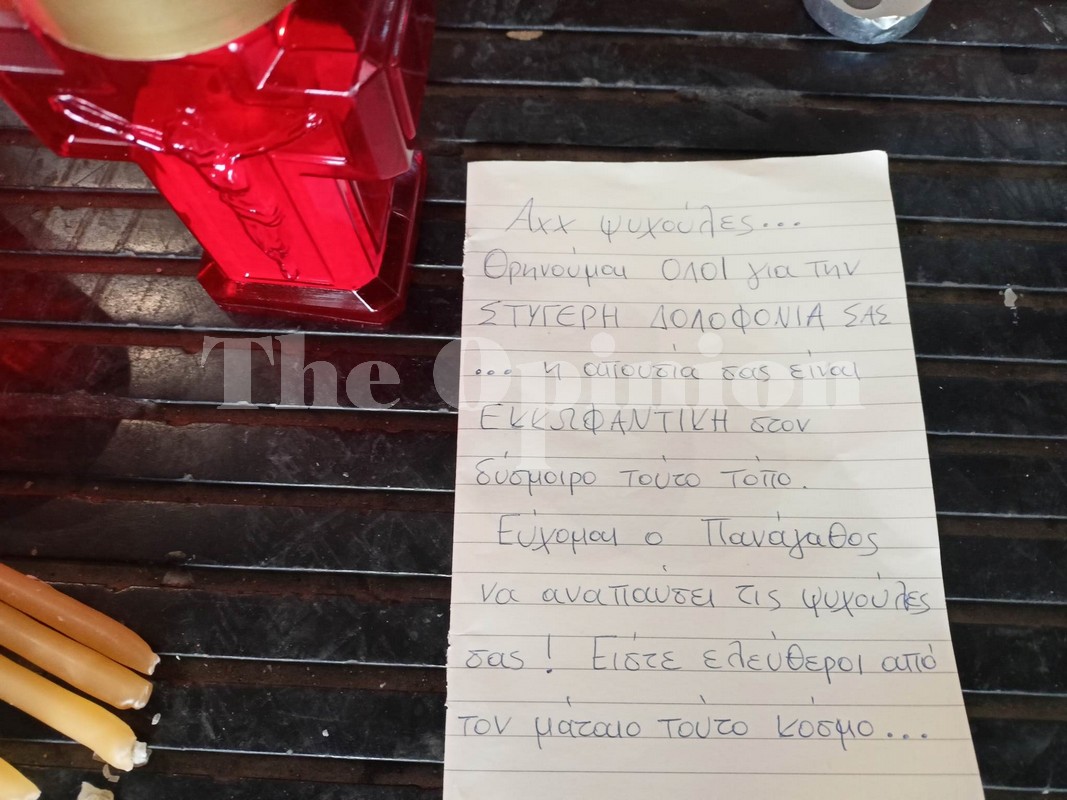 Αχχ ψυχούλες...
Θρηνούμαι ΟΛΟΙ για την
ΣΤΥΓΕΡΗ ΔΟΛΟΦΟΝΙΑ ΣΑΣ
... η απουσία σας είναι
ΕΚΚΩΦΑΝΤΙΚΗ στον
δύσμοιρο τούτο τόπο.
Εύχομαι ο Πανάγαθος
να αναπαύσει τις ψυχούλες
σας! Είστε ελεύθεροι από
τον μάταιο τούτο κόσμο...
The Opinion